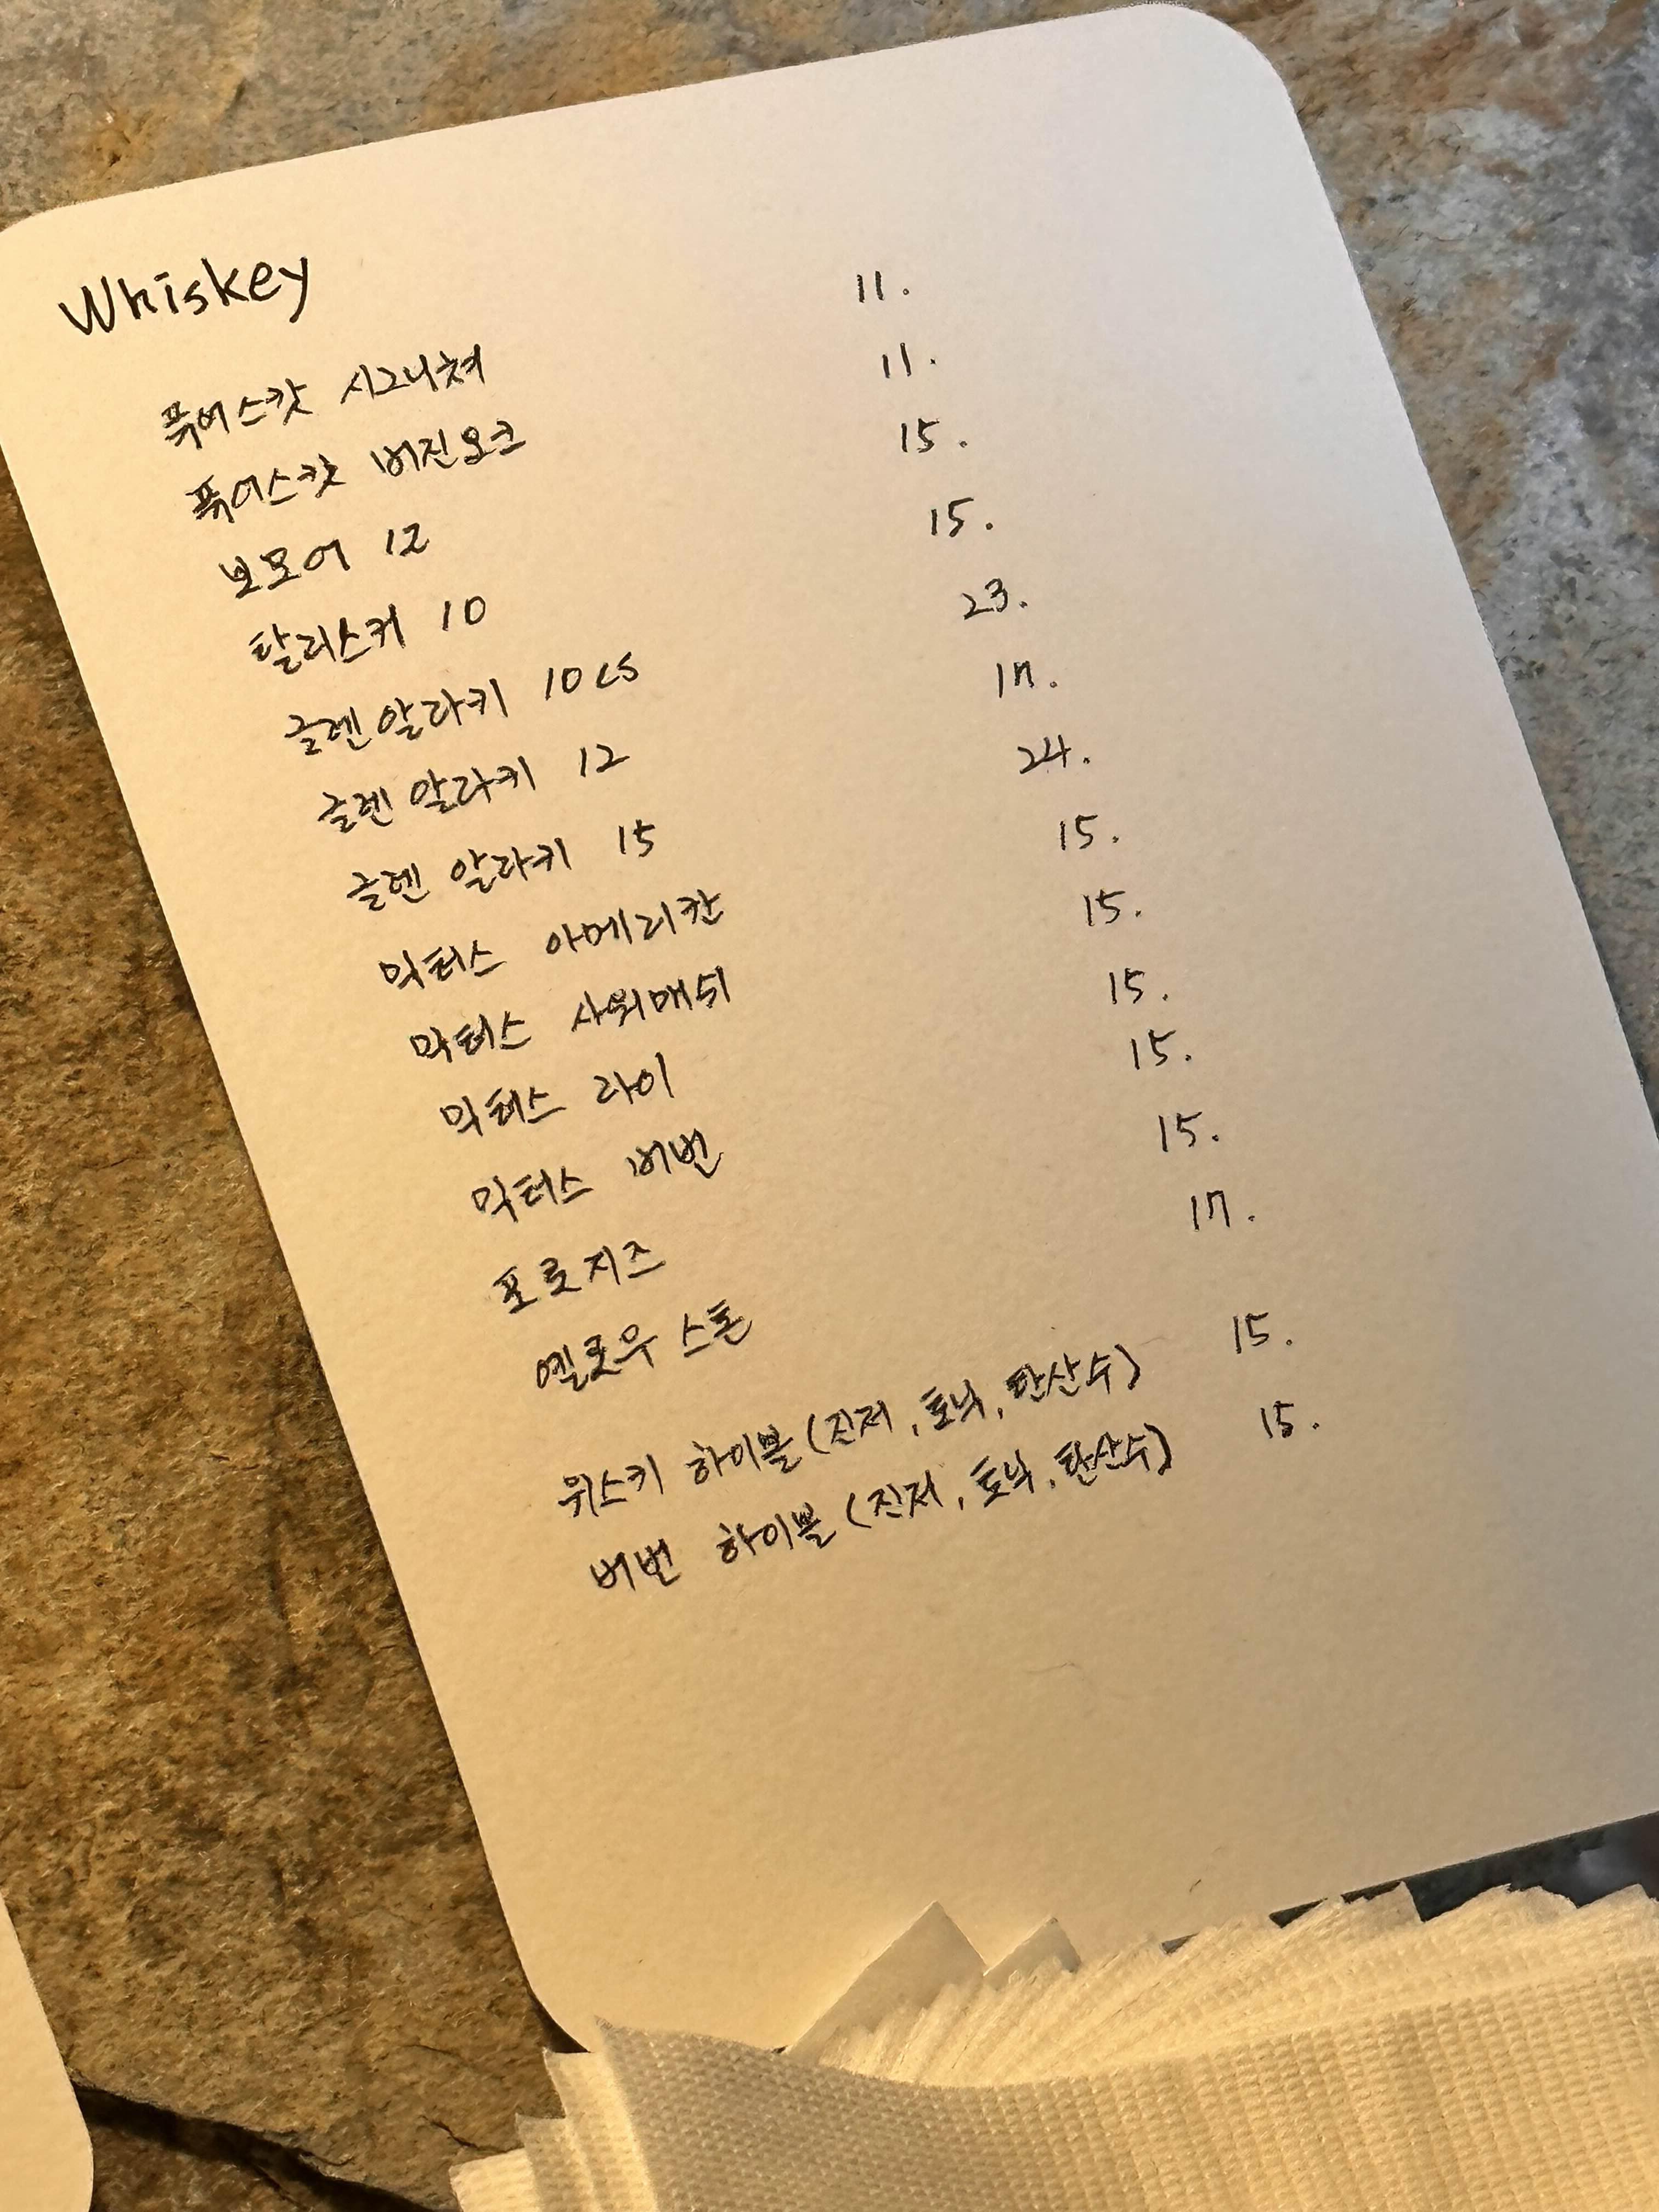 Whiskey
퓨어스캇 시그니쳐 11.
퓨어스캇 버진오크 11.
보모어 12 15.
탈리스커 10 15.
글렌알라키 10cs 23.
글렌알라키 12 17.
글렌알라키 15 24.
믹터스 아메리칸 15.
믹터스 사워매쉬 15.
믹터스 라이 15.
믹터스 버번 15.
포로지즈 15.
옐로우 스톤 17.
위스키 하이볼 (진저, 토닉, 탄산수) 15.
버번 하이볼 (진저, 토닉, 탄산수) 15.